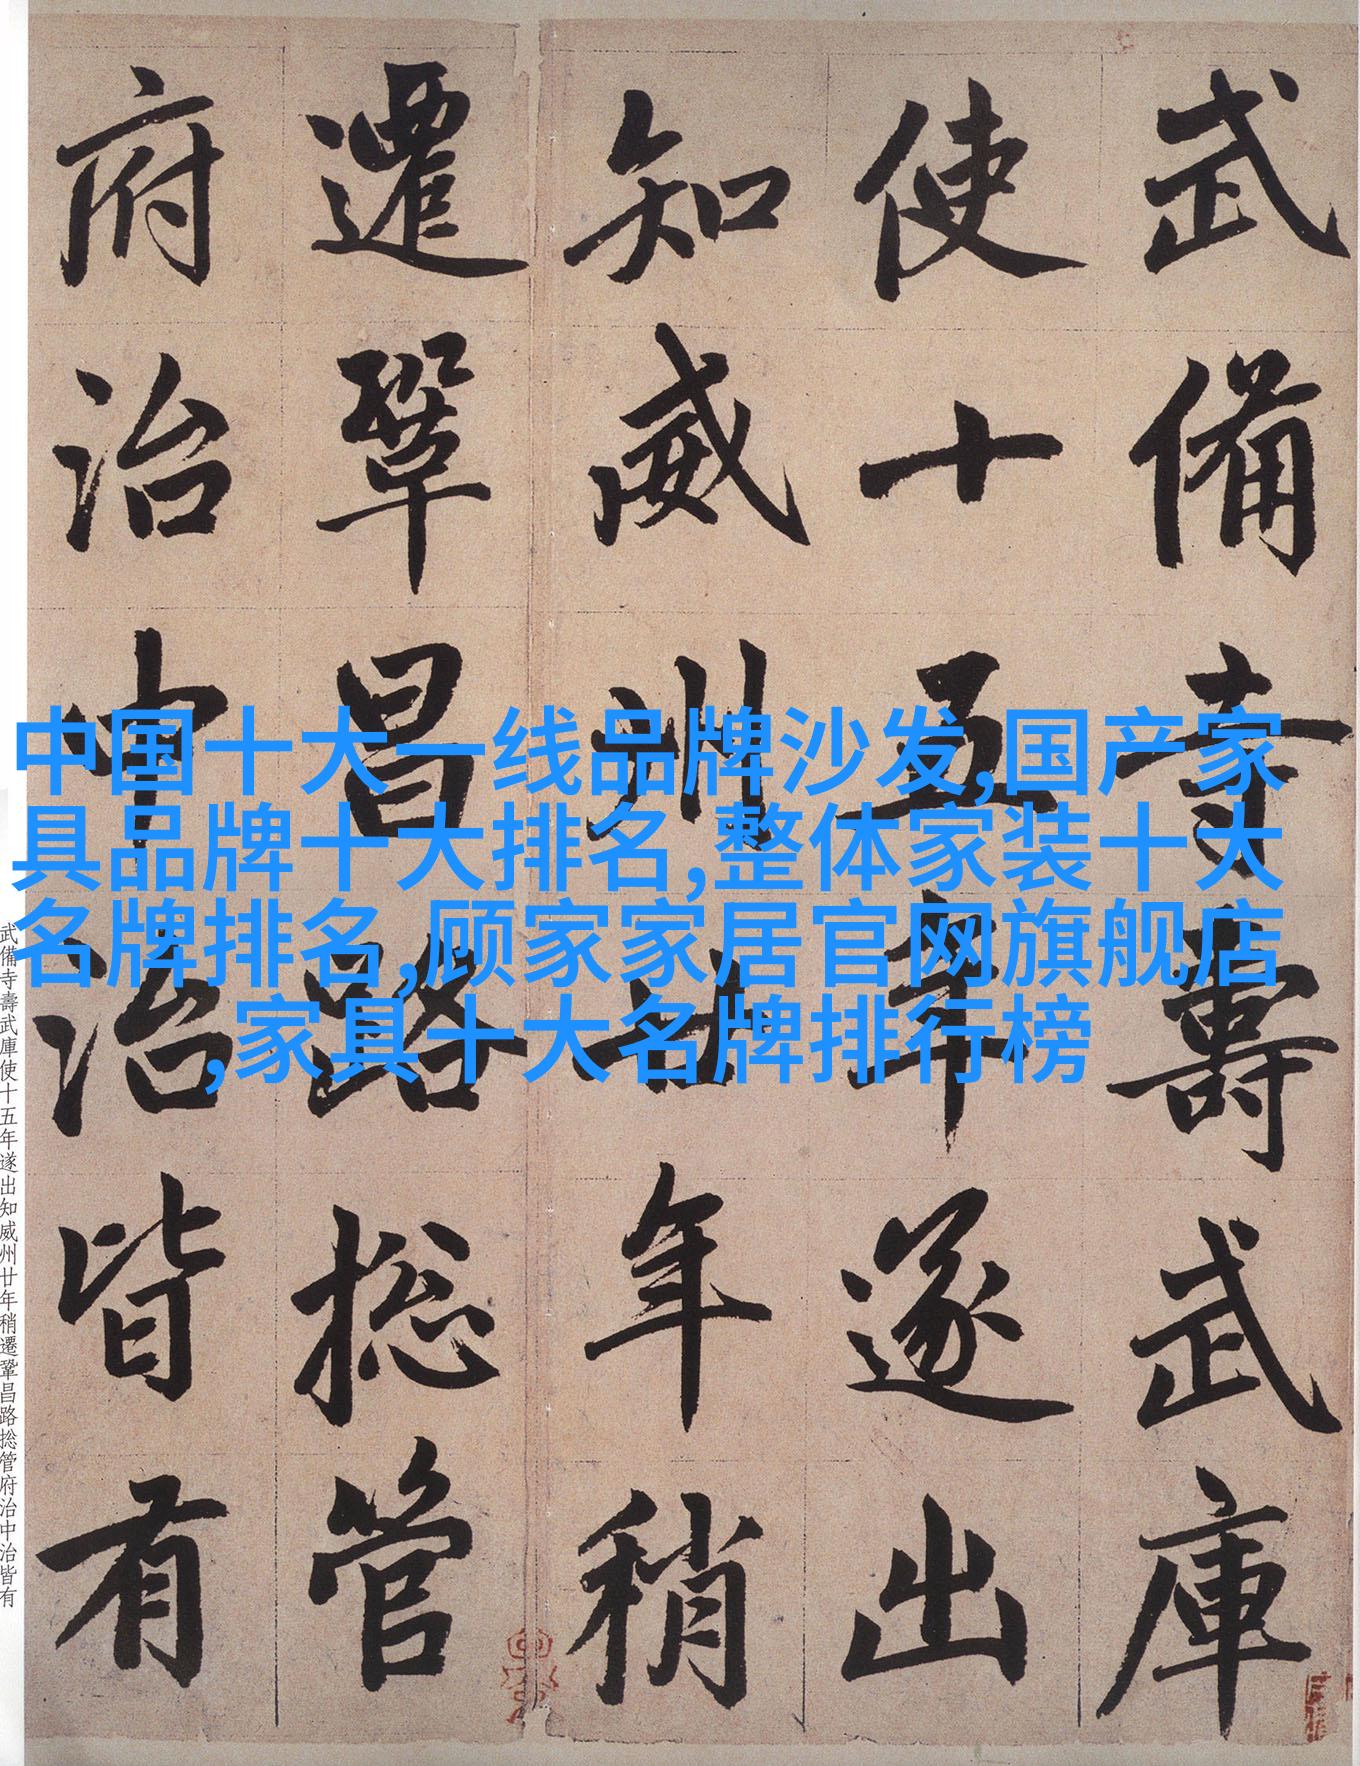 武備寺壽武庫
使十五年遂出
知威州廿年稍
遷鞏昌路捴管
府治中治皆有
中国十大一线品牌沙发,国产家
具品牌十大排名,整体家装十大
名牌排名,顾家家居官网旗舰店
,家具十大名牌排行榜
武備寺壽武庫使十五年遂出知威州廿年稍遷鞏昌路捴管府治中治皆有